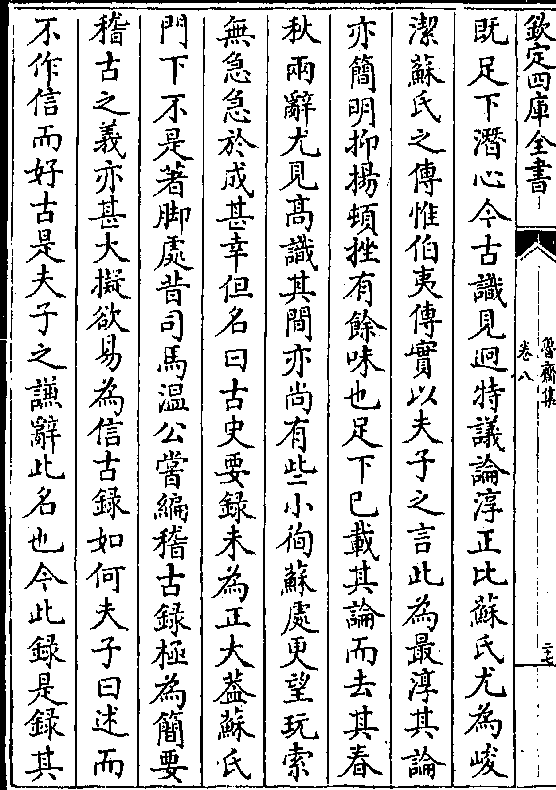 欽定四庫全書
魯齋集
卷八
既足下潛心今古識見迥特議論淳正比蘇氏尤為峻
潔蘇氏之傳惟伯夷傳實以夫子之言此為最淳其論
亦簡明抑揚頓挫有餘味也足下已載其論而去其春
秋兩辭尤見髙識其間亦尚有些小徇蘇處更望玩索
無急急於成甚幸但名曰古史要録未為正大葢蘇氏
門下不是著脚處昔司馬温公嘗編稽古録極為簡要
稽古之義亦甚大擬欲易為信古録如何夫子曰述而
不作信而好古是夫子之謙辭此名也今此録是録其